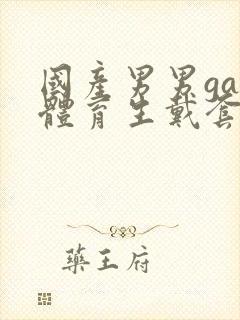 國產男男ga
體育生戴套
藥王府